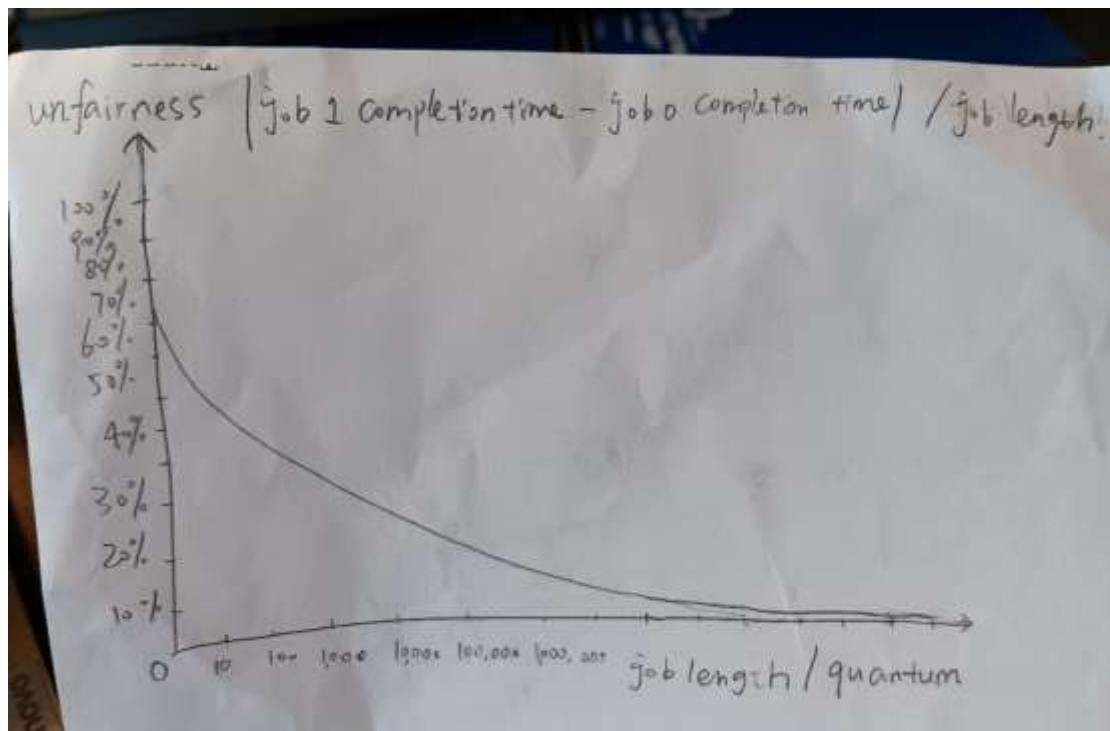 unfairness |job 1 completion time - job 0 completion time| / job length.
100%
90%
80%
70%
60%
50%
40%
30%
20%
10%
0 10 100 1,000 10,000 100,000 1,000,000
job length / quantum